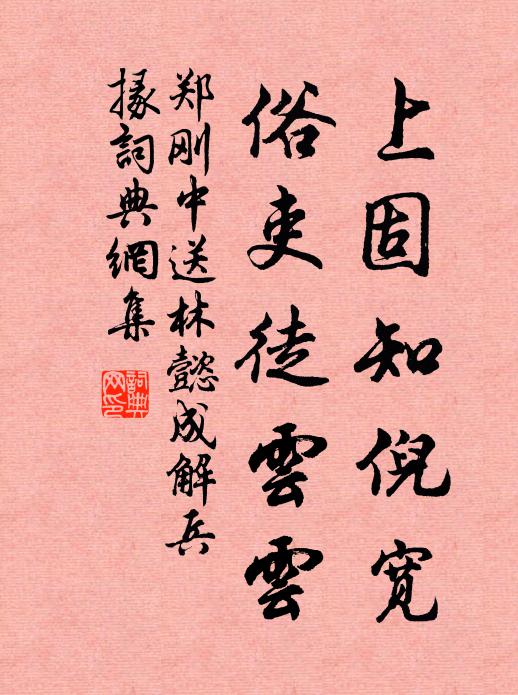 上固知倪宽
俗吏徒雲雲
郑刚中送林懿成解兵
掾詞典網集
詞典网印